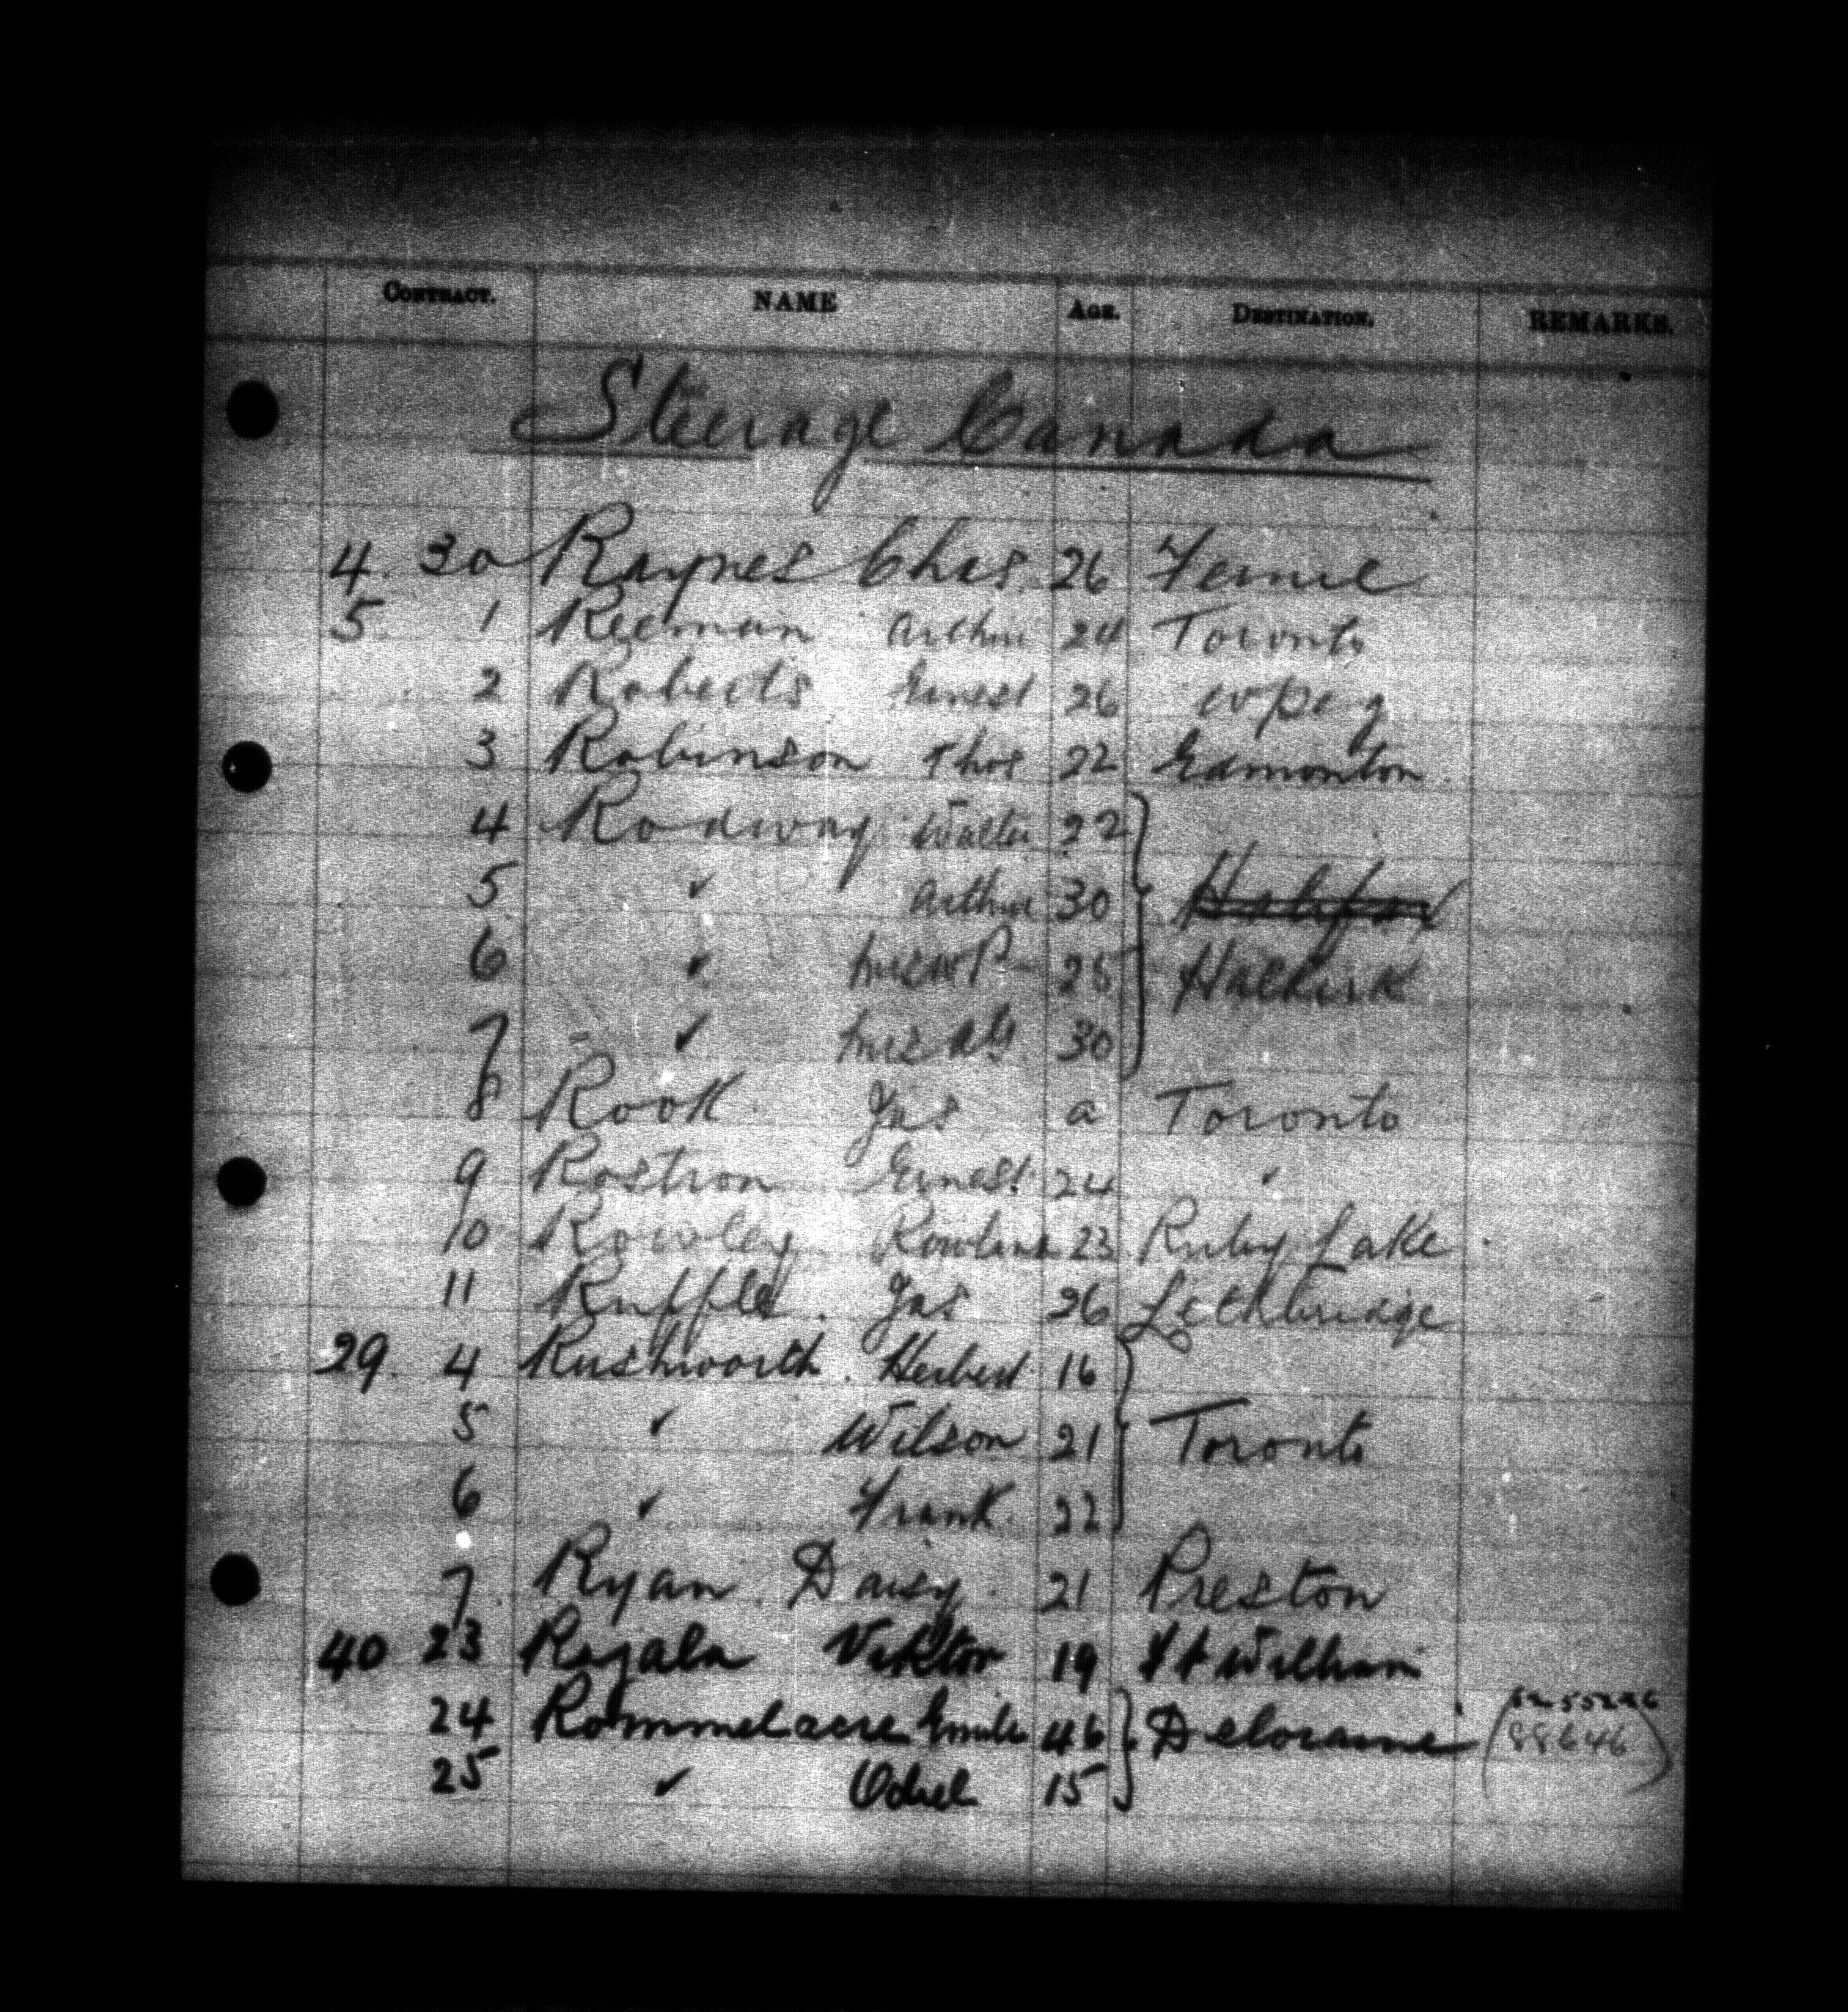 CONTRACT. NAME AGE. DESTINATION. REMARKS.
Steerage Canada
4. 30 Raynes Chas. 26 Fernie
5. 1 Reeman Arthur 24 Toronto
2 Roberts Ernest 26 wpeg
3 Robinson Thos 22 Edmonton
4 Rodway Walter 22
5 " Arthur 30 Halifax
6 " Mrs W P 25 Halkirk
7 " Mrs 30
8 Rook Jas a Toronto
9 Rostron Ernest 24 "
10 Rowley 23 Ruby Lake
11 Ruffles. Jas 26 Lethbridge
29. 4 Rushworth. Herbert 16
5 " Wilson 21 Toronto
6 " Frank. 22
7. Ryan Daisy. 21 Preston
40 23 Rajala Viktor 19 Ft William
24 Rommelaere Emile 46 Deloraine (88646)
25 " Odiel 15